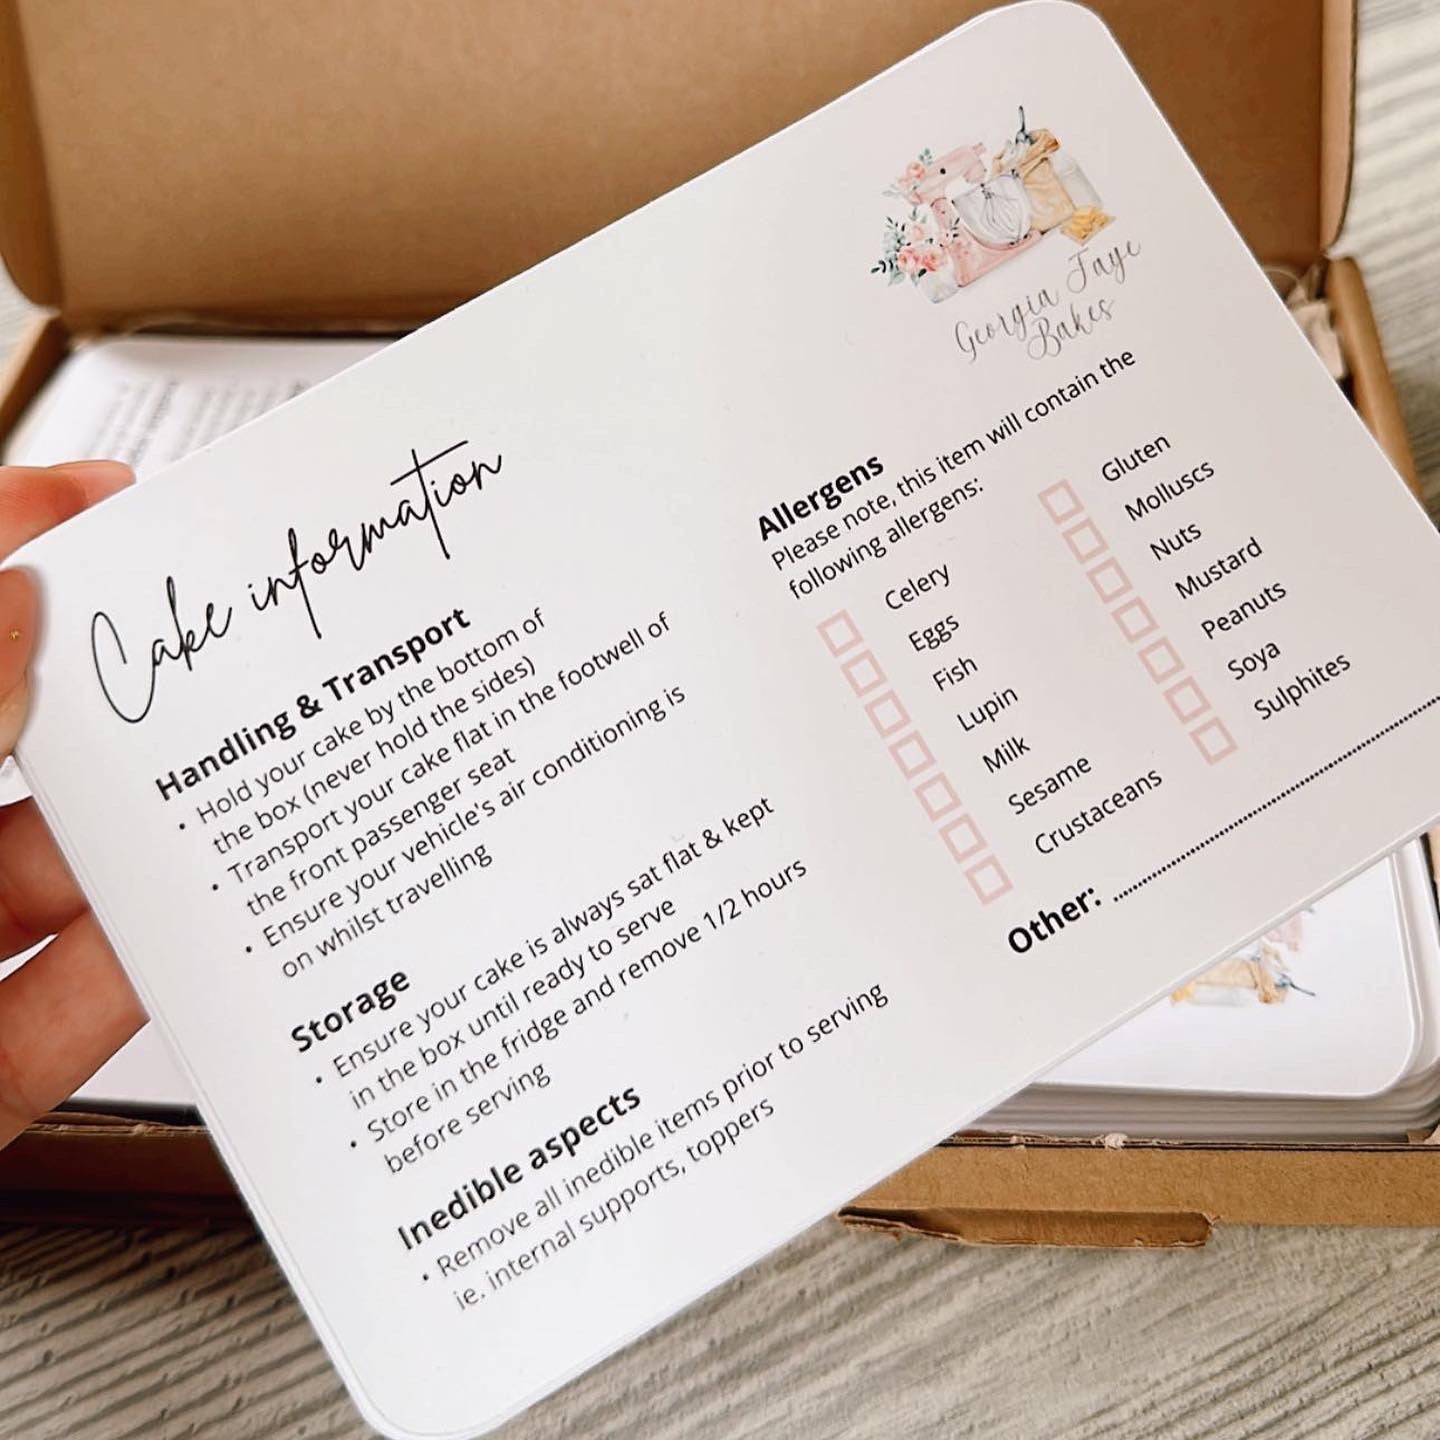 Georgia Faye
Bakes
Cake information
Handling & Transport
• Hold your cake by the bottom of
the box (never hold the sides)
• Transport your cake flat in the footwell of
the front passenger seat
• Ensure your vehicle's air conditioning is
on whilst travelling
Storage
• Ensure your cake is always sat flat & kept
in the box until ready to serve
• Store in the fridge and remove 1/2 hours
before serving
Inedible aspects
• Remove all inedible items prior to serving
ie. internal supports, toppers
Allergens
Please note, this item will contain the
following allergens:
Celery
Eggs
Fish
Lupin
Milk
Sesame
Crustaceans
Gluten
Molluscs
Nuts
Mustard
Peanuts
Soya
Sulphites
Other: ........................................